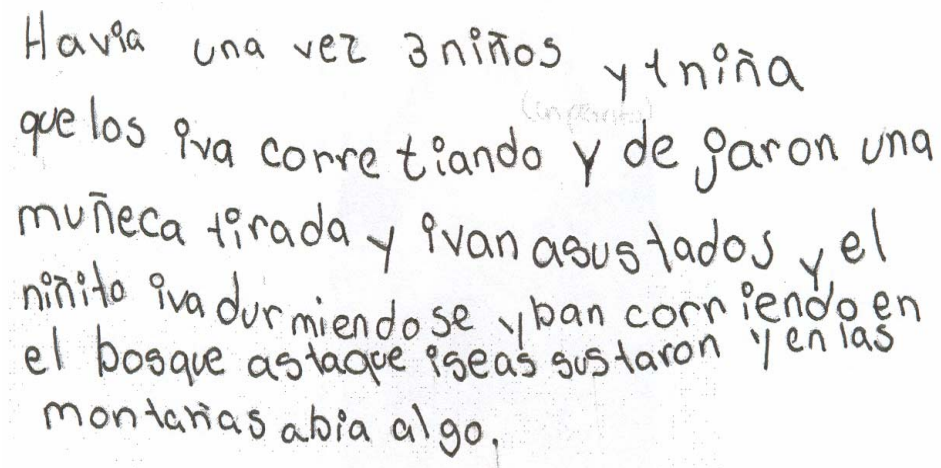 Havia una vez 3 niños y 1 niña
que los iva corre tiando y de jaron una
muñeca tirada y ivan asustados y el
niñito iva dur miendo se y ban corr iendo en
el bosque astaque iseas sustaron y en las
montañas abia algo.